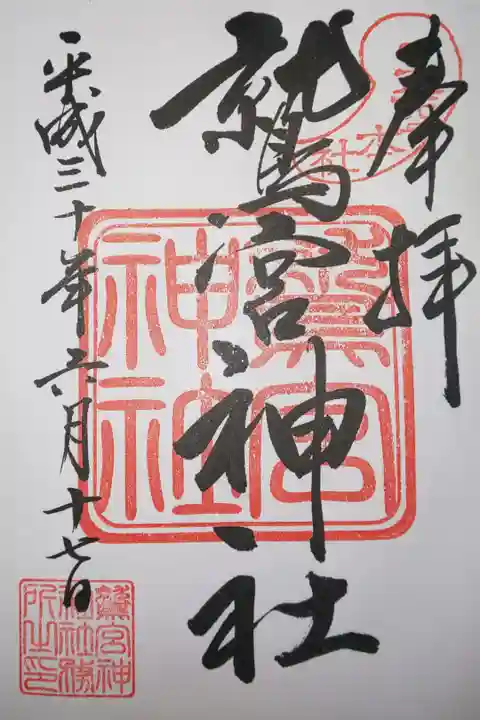 奉拝
鷲宮神社
平成三十年六月十七日
鷲宮
神社
鷲宮神
社務
所之印
本社